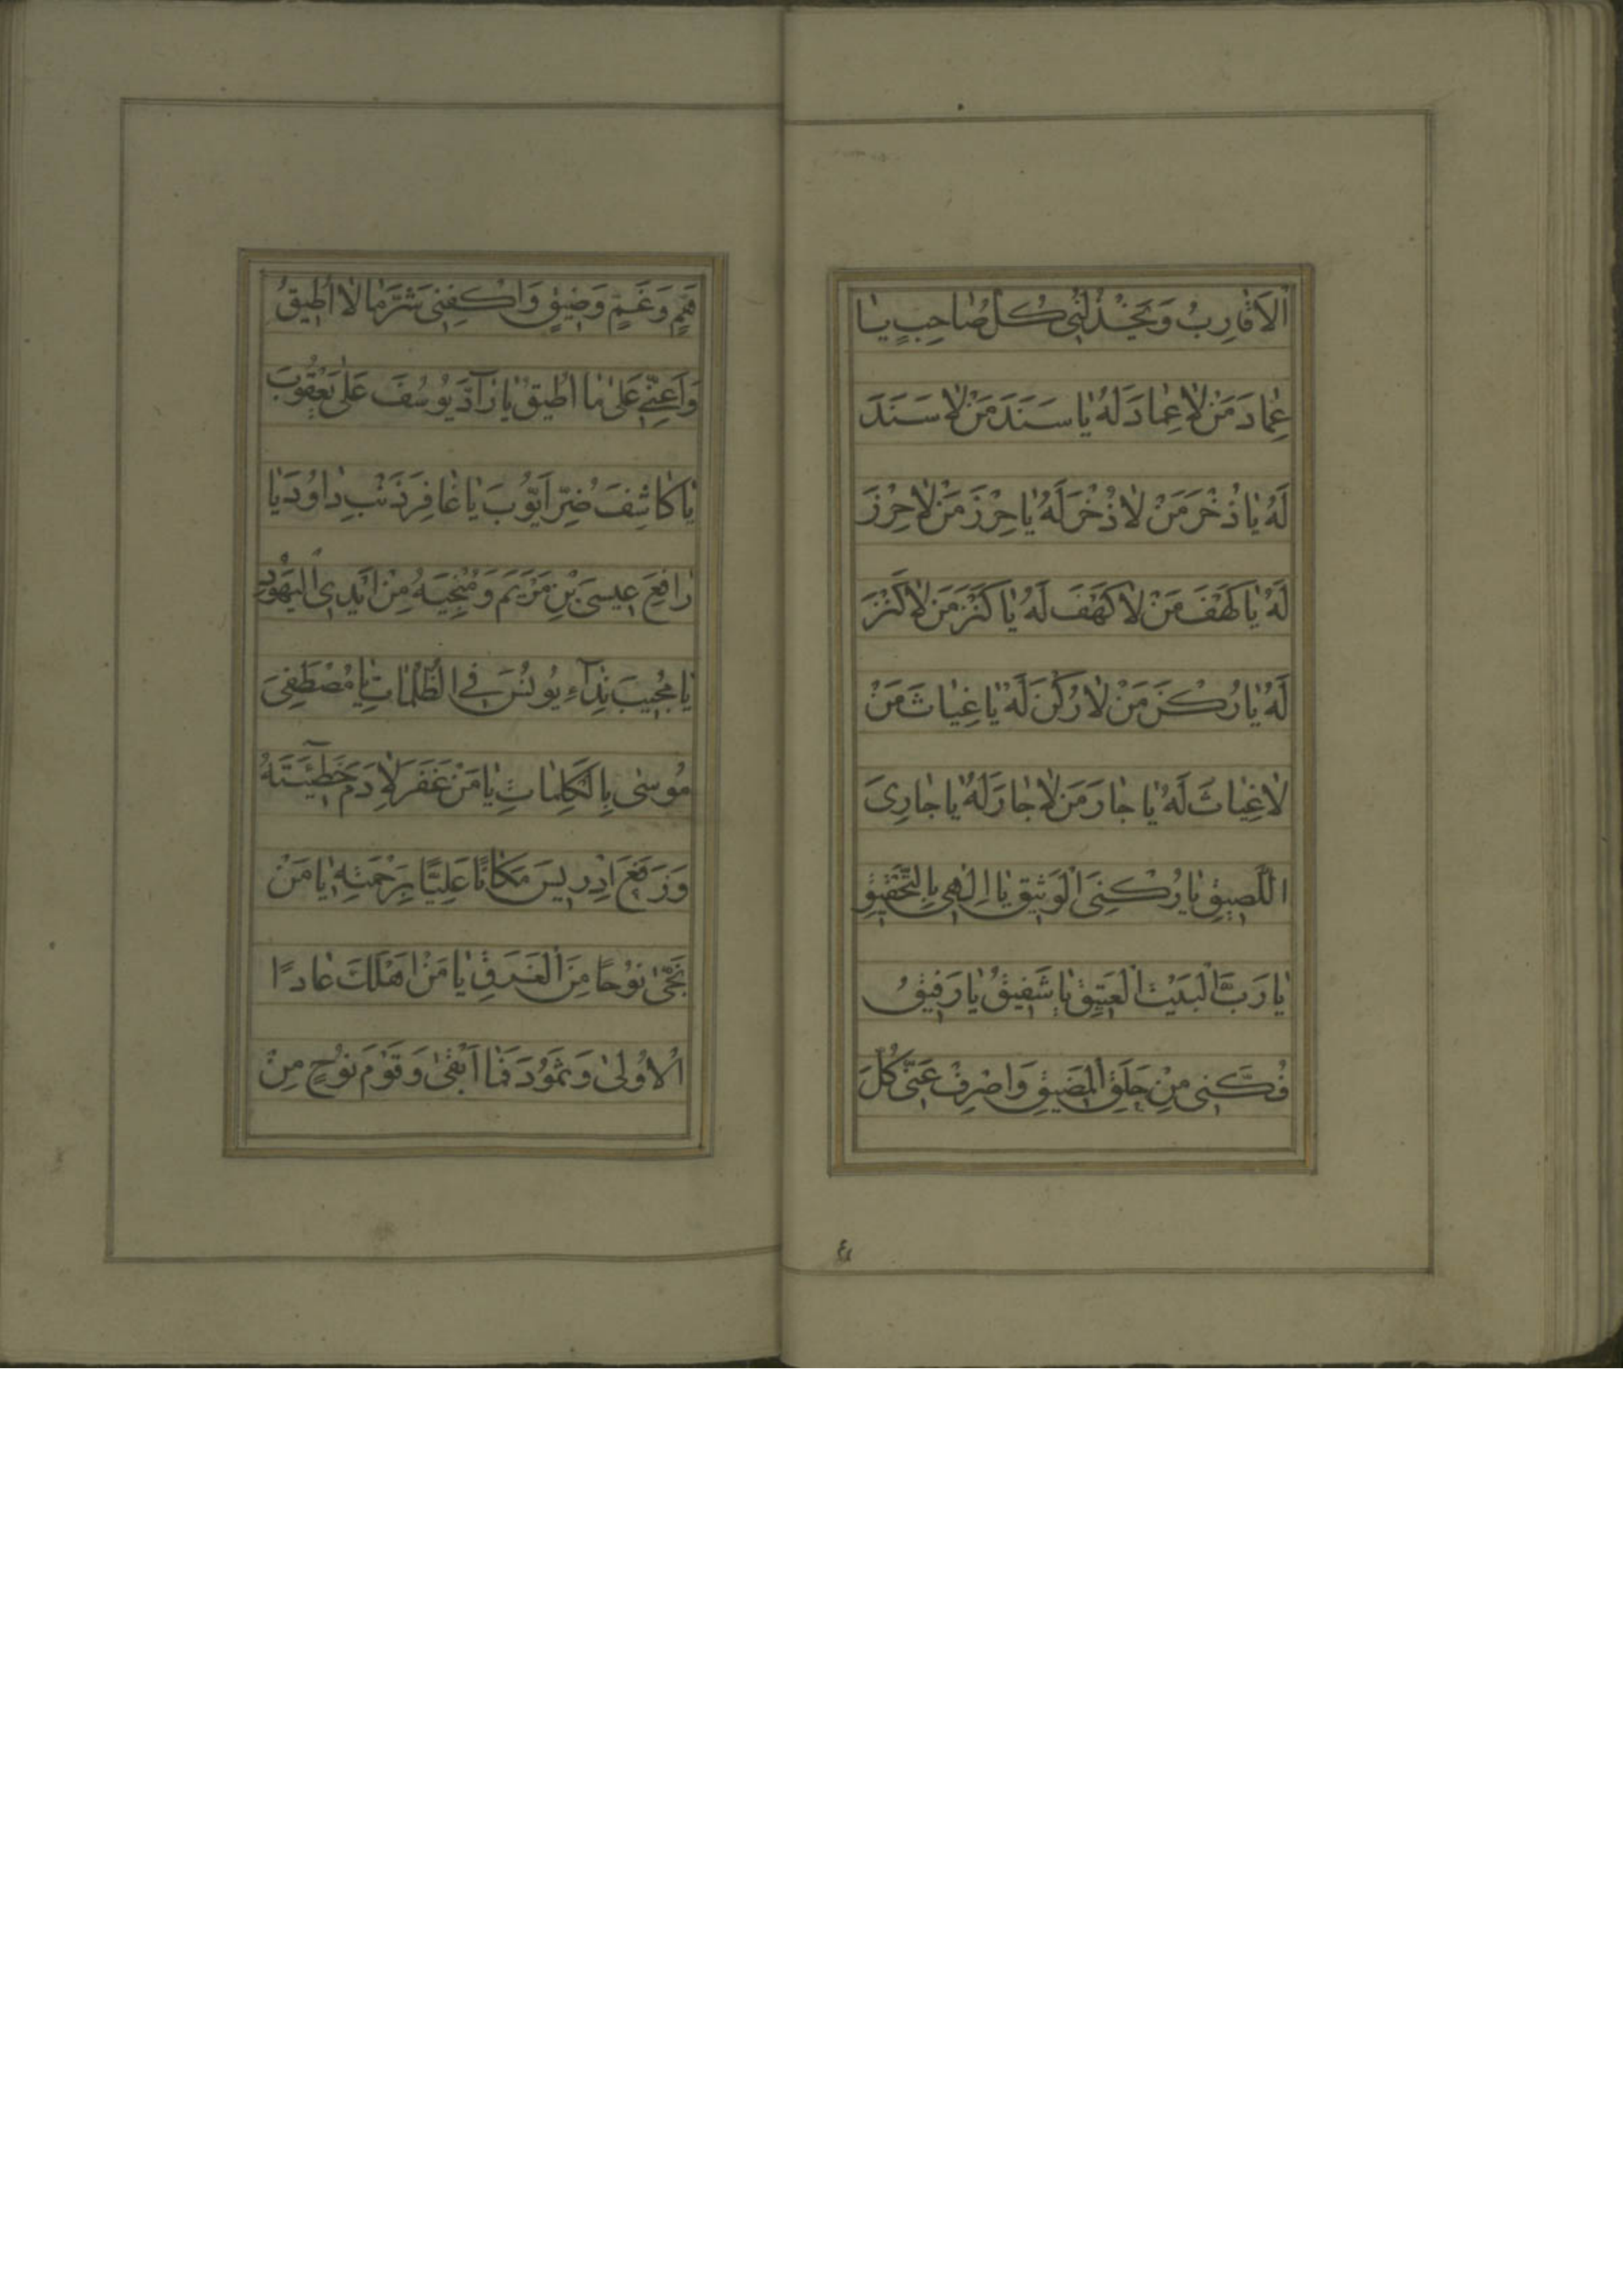 الْاَقٰارِبُ وَيَخْذُلُنٖى كُلُّ صٰاحِبٍ يٰا
عِمٰادَ مَنْ لٰا عِمٰادَ لَهُ يٰا سَنَدَ مَنْ لٰا سَنَدَ
لَهُ يٰا ذُخْرَ مَنْ لٰا ذُخْرَ لَهُ يٰا حِرْزَ مَنْ لٰا حِرْزَ
لَهُ يٰا كَهْفَ مَنْ لٰا كَهْفَ لَهُ يٰا كَنْزَ مَنْ لٰا كَنْزَ
لَهُ يٰا رُكْنَ مَنْ لٰا رُكْنَ لَهُ يٰا غِيٰاثَ مَنْ
لٰا غِيٰاثَ لَهُ يٰا جٰارَ مَنْ لٰا جٰارَ لَهُ يٰا جٰارِىَ
اللَّصٖيقِ يٰا رُكْنِىَ الْوَثٖيقِ يٰا اِلٰهٖى بِالتَّحْقٖيقِ
يٰا رَبَّ الْبَيْتِ الْعَتٖيقِ يٰا شَفٖيقُ يٰا رَفٖيقُ
فُكَّنٖى مِنْ حَلَقِ الْمَضٖيقِ وَاصْرِفْ عَنّٖى كُلَّ
٤١
هَمٍّ وَغَمٍّ وَضٖيقٍ وَاكْفِنٖى شَرَّ مٰا لٰا اُطٖيقُ
وَاَعِنّٖى عَلٰى مٰا اُطٖيقُ يٰا رٰآدَّ يُوسُفَ عَلٰى يَعْقُوبَ
يٰا كٰاشِفَ ضُرِّ اَيُّوبَ يٰا غٰافِرَ ذَنْبِ دٰاوُدَ يٰا
رٰافِعَ عٖيسَى بْنِ مَرْيَمَ وَ مُنْجِيَهُ مِنْ اَيْدِى الْيَهُودِ
يٰا مُجٖيبَ نِدٰآءِ يُونُسَ فِى الظُّلُمٰاتِ يٰا مُصْطَفِىَ
مُوسٰى بِالْكَلِمٰاتِ يٰا مَنْ غَفَرَ لِاٰدَمَ خَطٖٓيئَتَهُ
وَرَفَعَ اِدْرٖيسَ مَكٰانًا عَلِيًّا بِرَحْمَتِهٖ يٰا مَنْ
نَجّٰى نُوحًا مِنَ الْغَرَقِ يٰا مَنْ اَهْلَكَ عٰادًا
الْاُولٰى وَثَمُودَ فَمٰا اَبْقٰى وَقَوْمَ نُوحٍ مِنْ